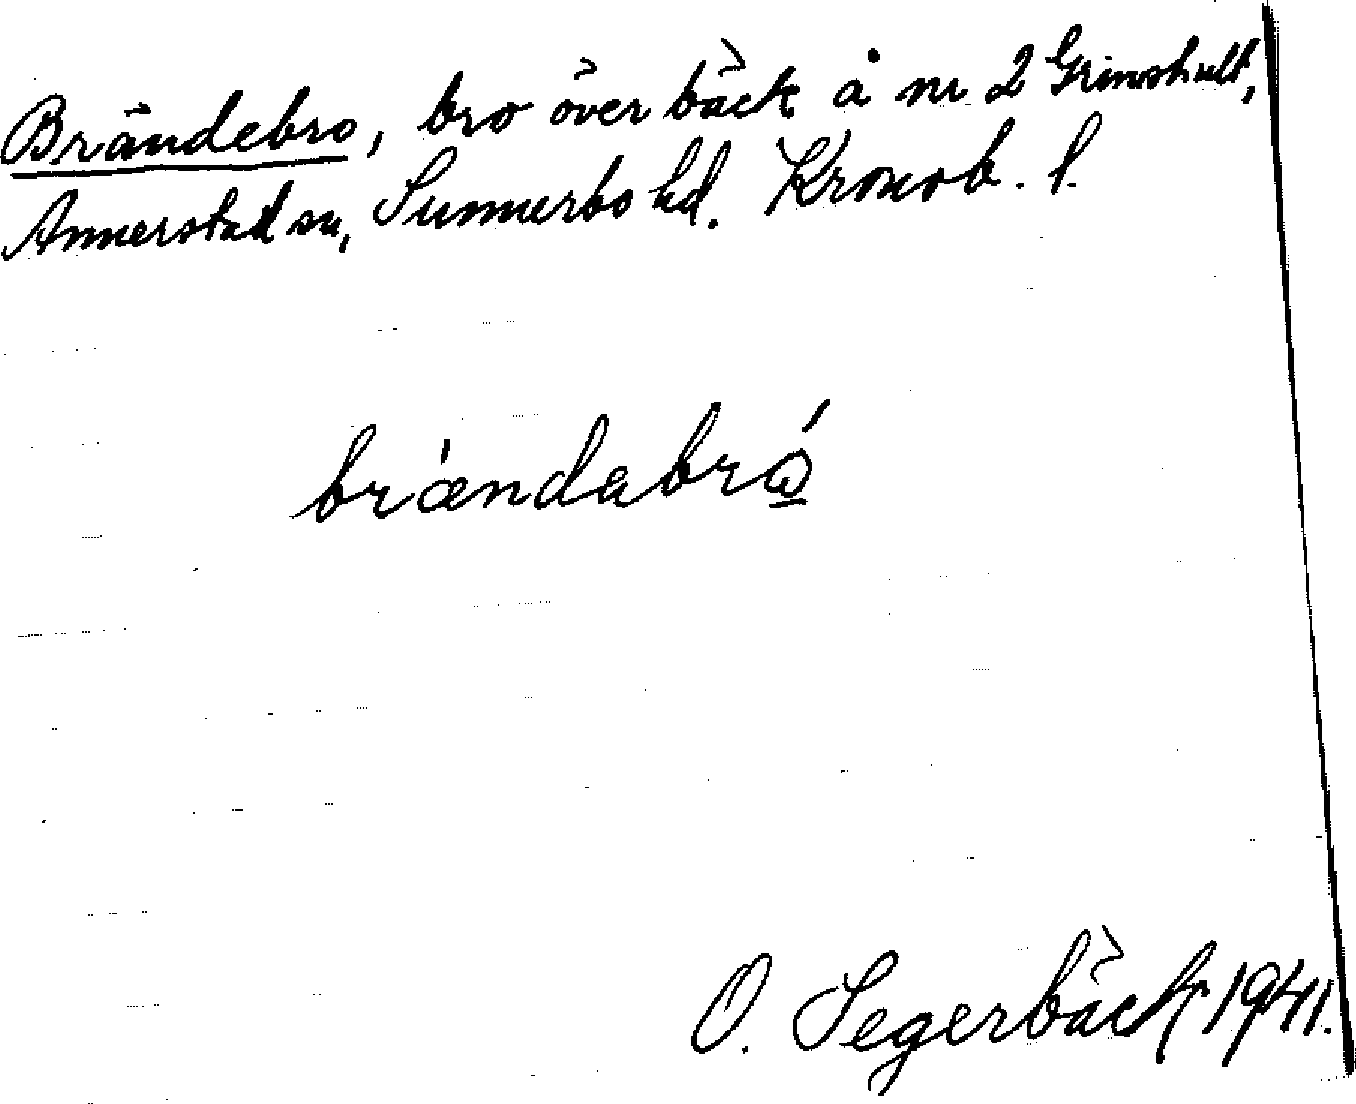 Brändebro, bro över bäck å nr 2 Grimshult,
Annerstad sn, Sunnerbo hd. Kronob. l.
brändabro̲
O. Segerbäck 1941.